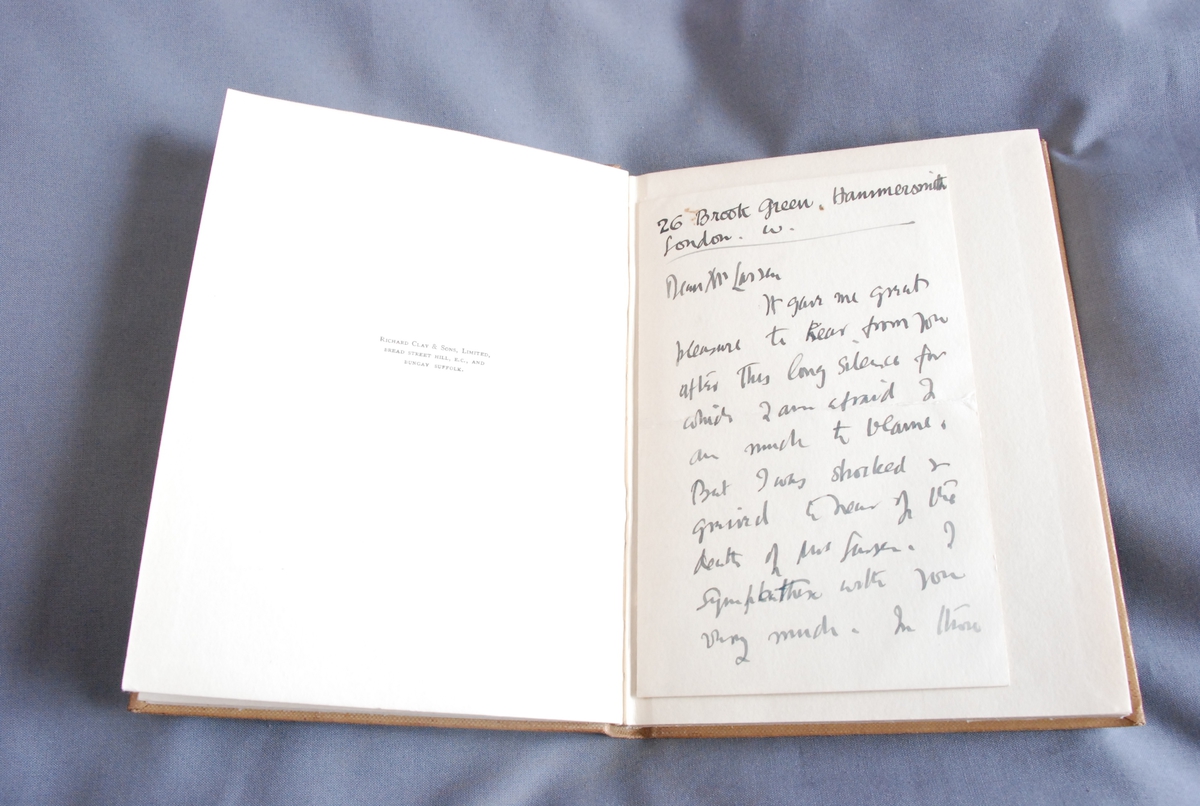 RICHARD CLAY & SONS, LIMITED,
BREAD STREET HILL, E.C., AND
BUNGAY, SUFFOLK.
26 Brook Green, Hammersmith
London. W.
Dear Mr Larsen
It gave me great
pleasure to hear from you
after this long silence for
which I am afraid I
am much to blame.
But I was shocked &
grieved to hear of the
death of Mrs Larsen. I
sympathise with you
very much. In these